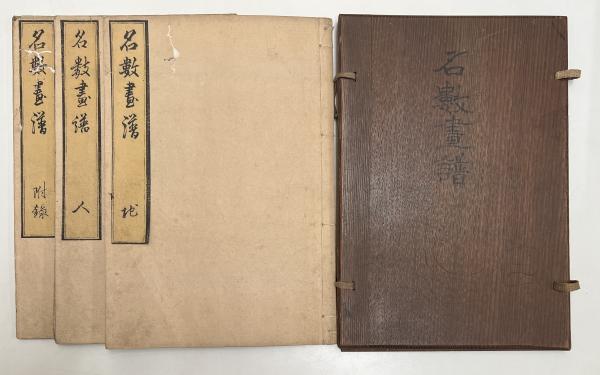 名數畫譜
名數畫譜 地
名數畫譜 人
名數畫譜 附錄